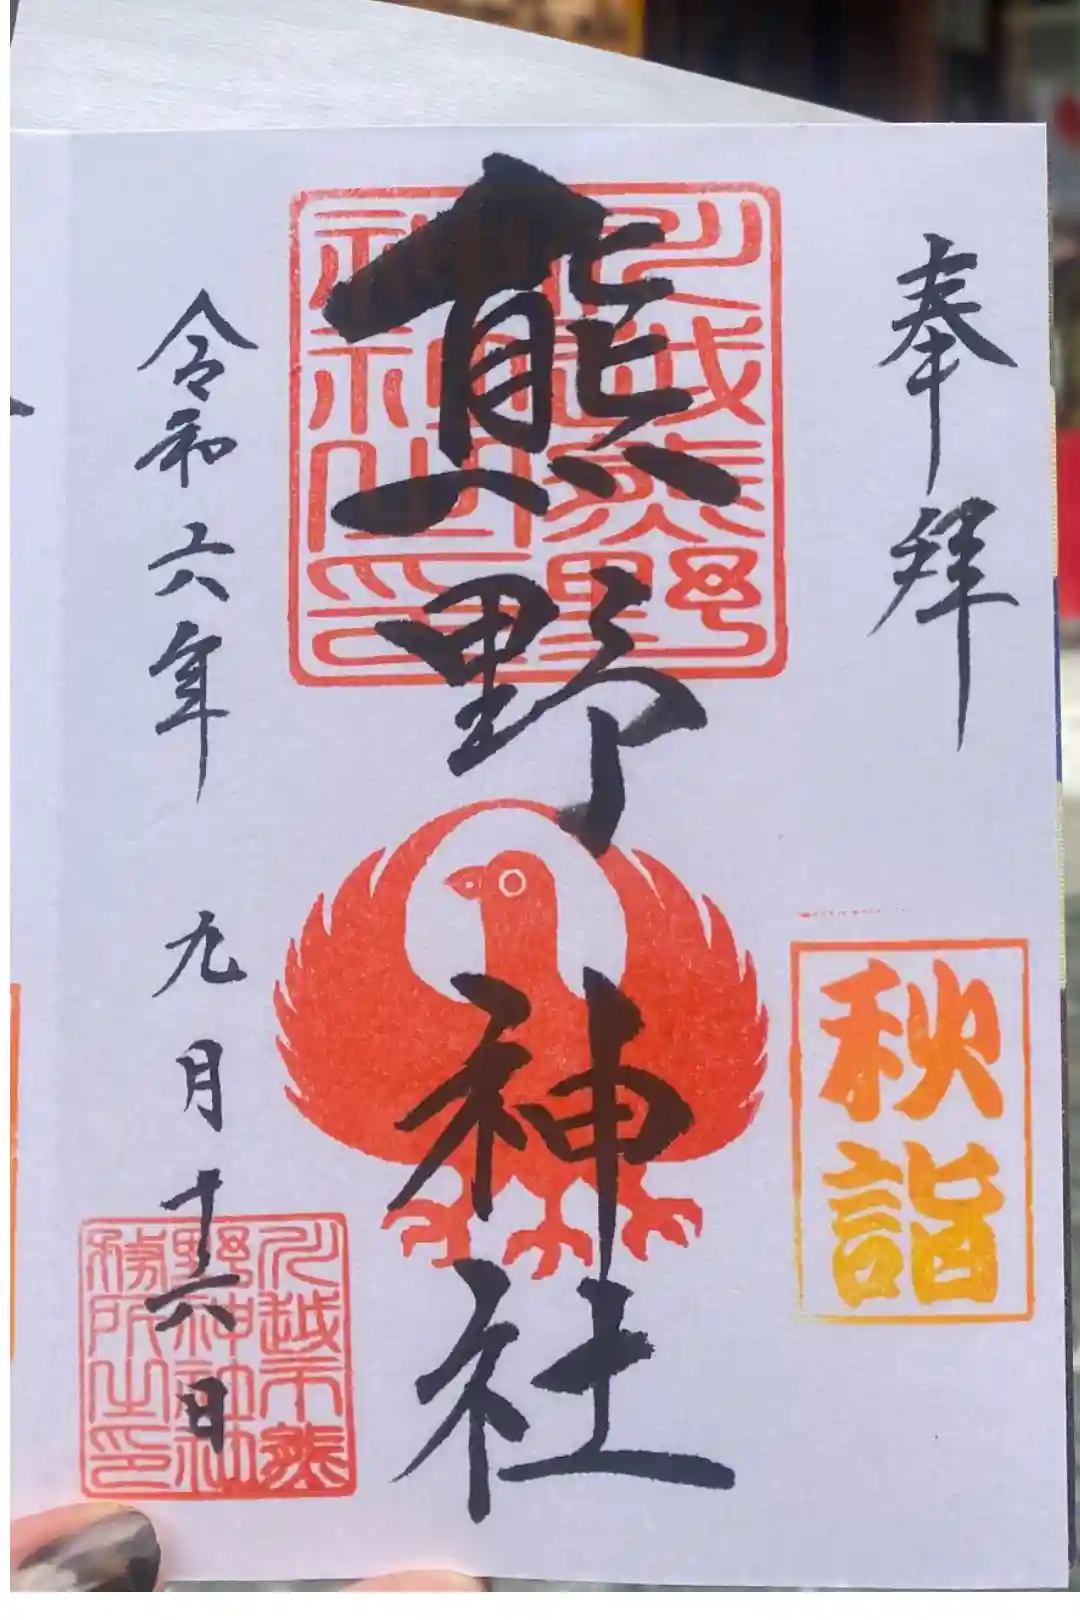 奉拝
秋詣
熊野神社
川越熊野
神社之印
令和六年九月十六日
川越市熊
野神社社
務所之印